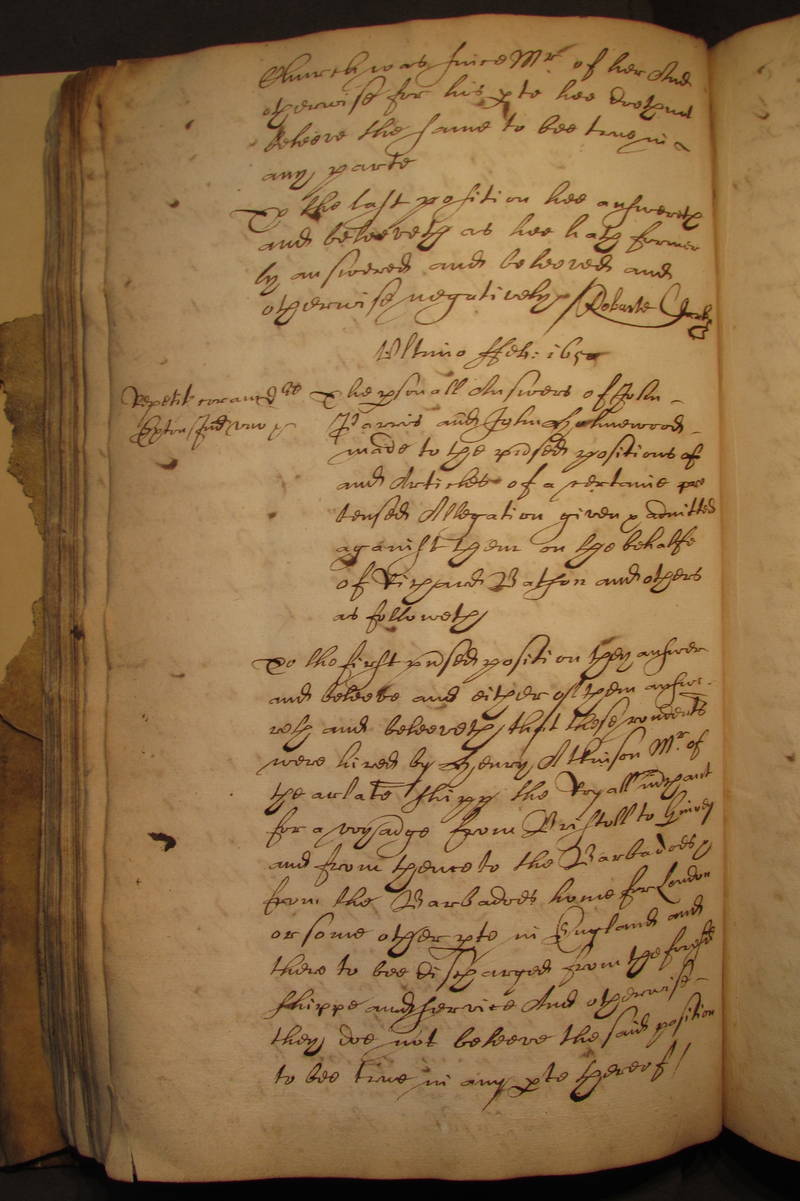 Church was since Mr of her And
otherwise for his pte hee doth not
beleeve the same to bee true in
any parte
To the last position hee answereth
and beleeveth as hee hath former
ly answered and beleeved and
otherwise negatively / Robarte Clarke
Ultimo ffeb: 1650
Repetit coram d
The psonall Answers of John
Parris and John Holmewood
made to the pnsed positions of
and Articles of a certaine pre
tensed Allegation given & admitted
against them on the behalfe
of Richard Bathon and others
as followeth
To the first pnsed position they answer
and beleeve and either of them answe
reth and beleeveth, that these rendents
were hired by Henry Atkinson Mr of
the arlate shipp the Royall mchant
for a voyadge from Bristoll to Guiney
and from thence to the Barbadoes
from the Barbadoes home for London
or some other pte in England and
there to bee discharged from the forsd
shippe and service And otherwise
they doe not beleeve the said position
to bee true in any pte thereof /